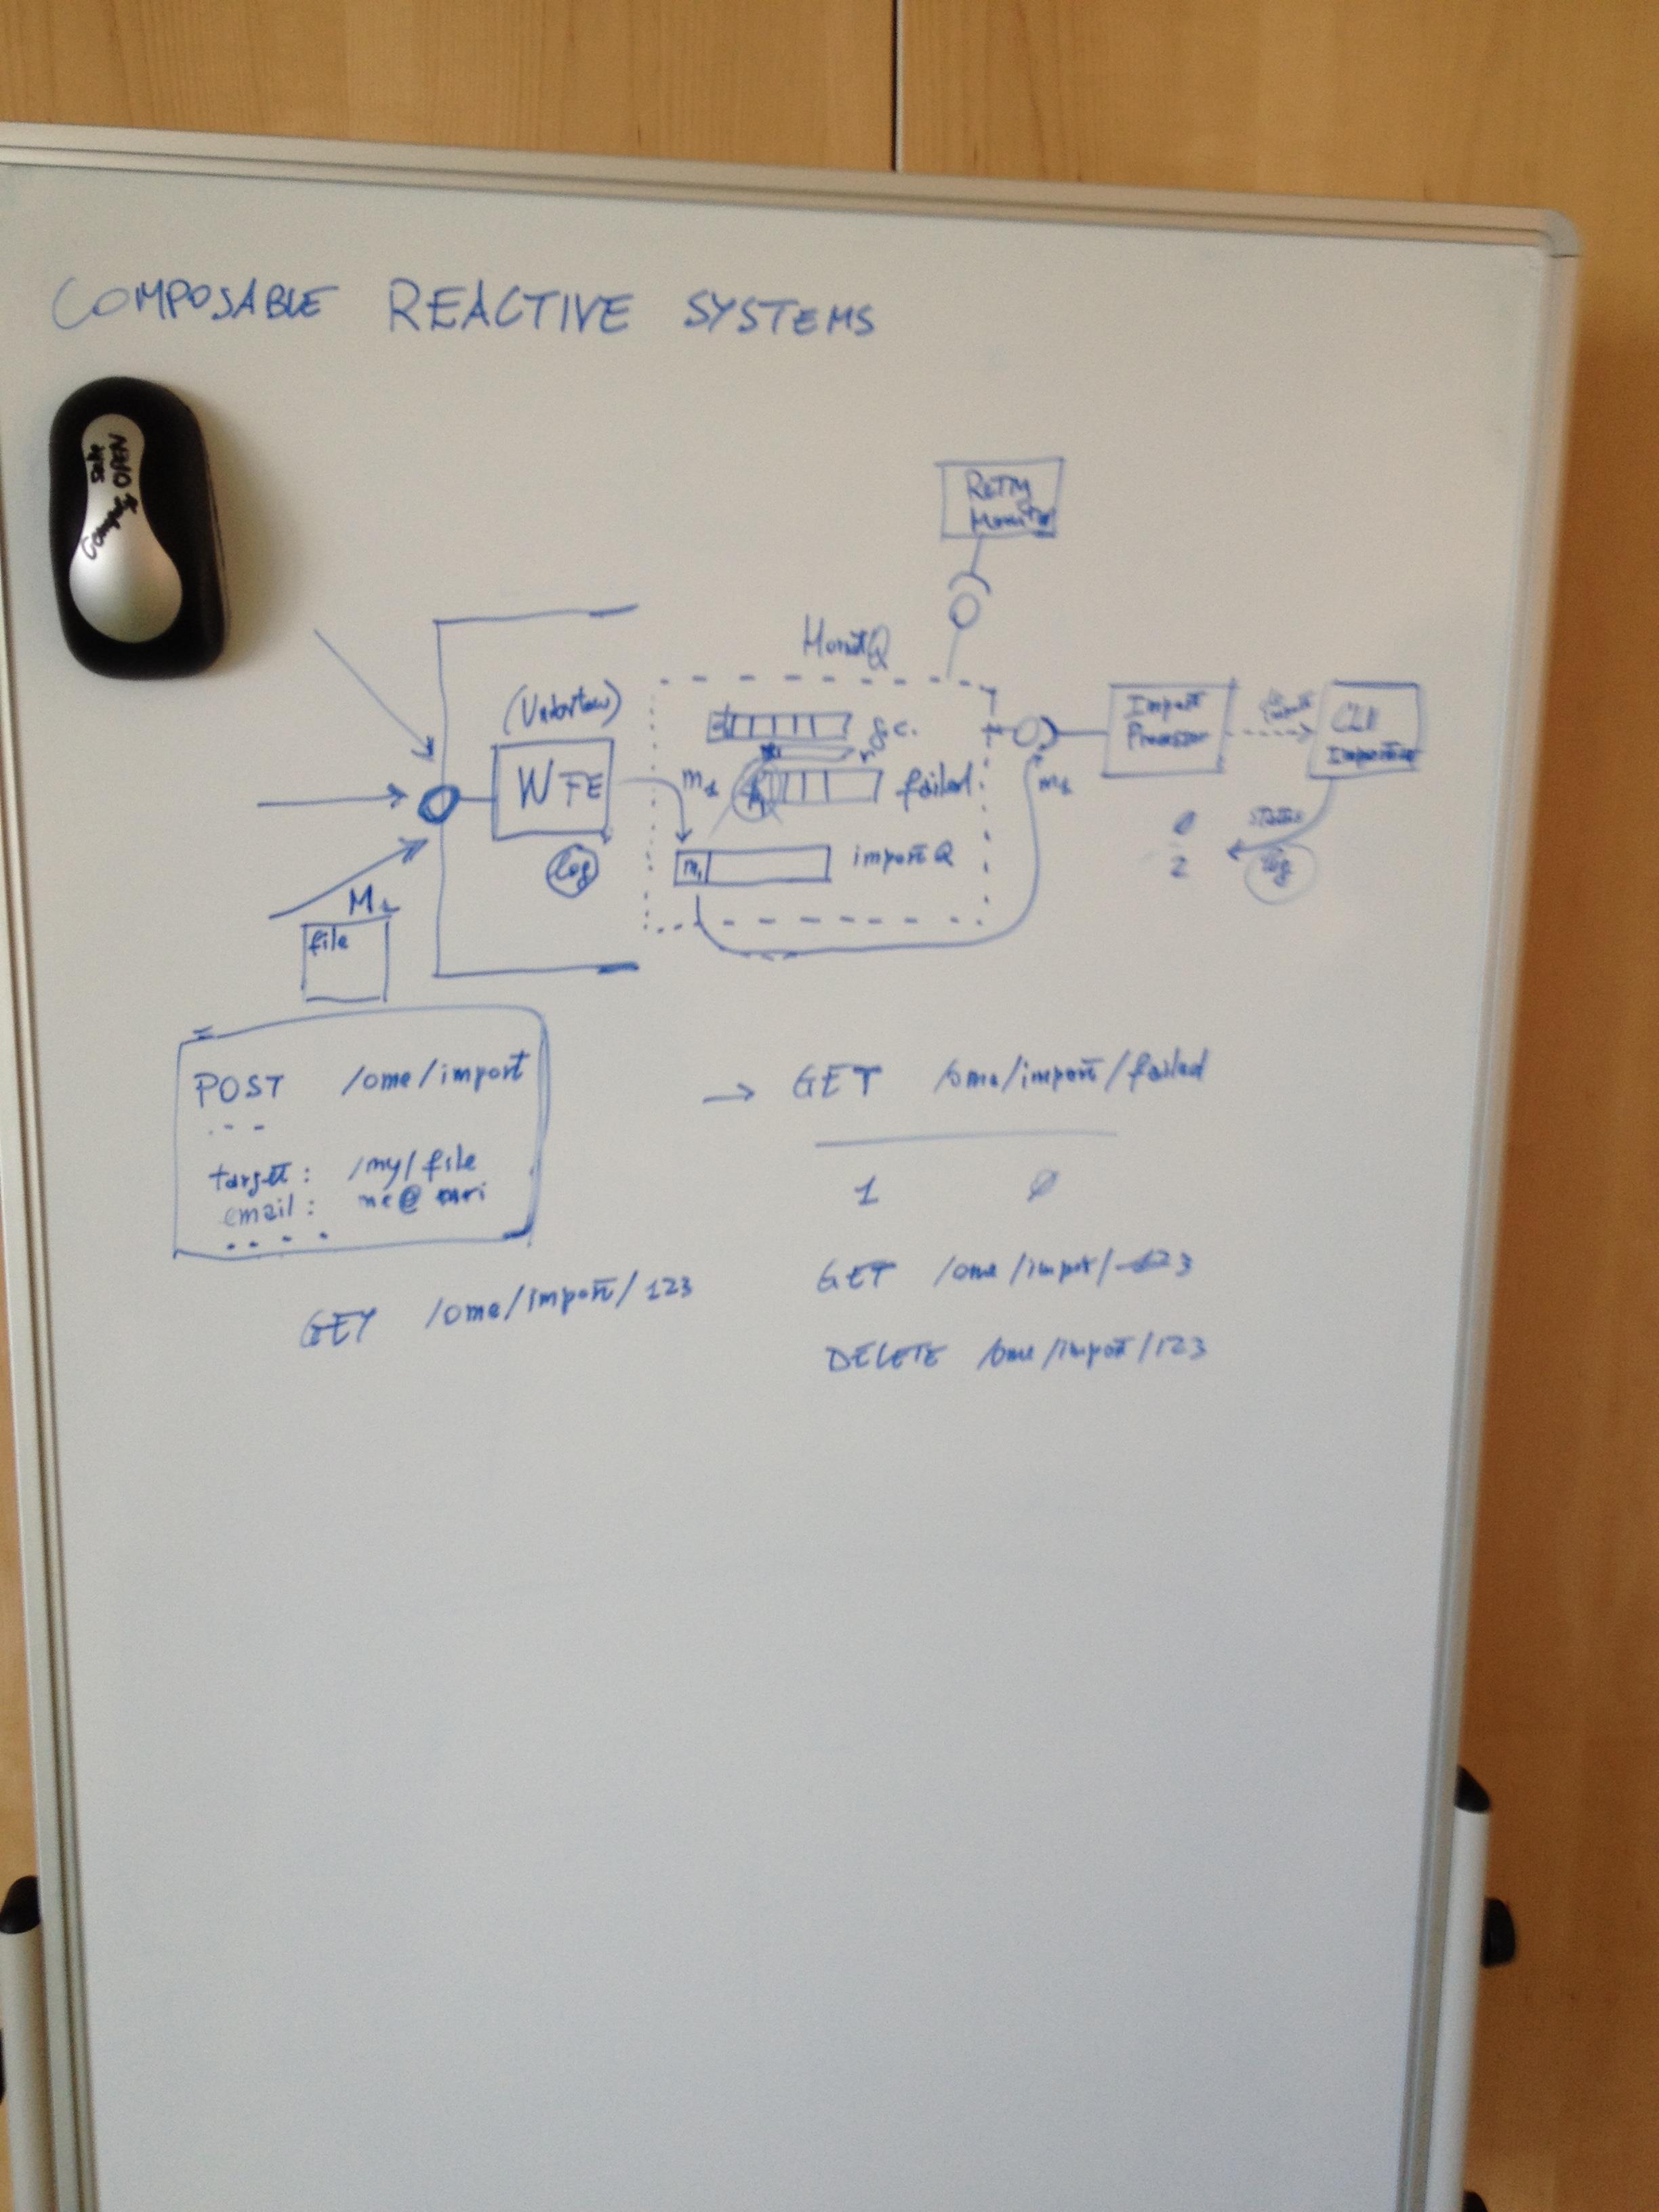 COMPOSABLE REACTIVE SYSTEMS
OPEN
Retry
Monitor
HornetQ
(Undertow)
WFE
log
g.c.
m1
failed
m1
importQ
m1
M1
file
Import
Processor
CLI
Importer
status
log
0
2
POST /ome/import
- - -
target: /my/file
email: me@
. . . .
GET /ome/import/123
→ GET /ome/import/failed
1 0
GET /ome/import/123
DELETE /ome/import/123